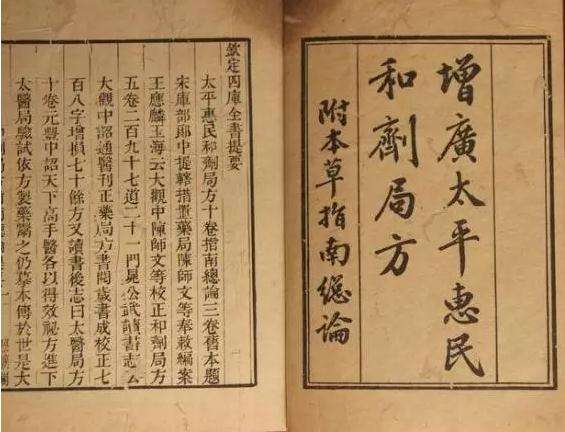 增廣太平惠民
和劑局方
附本草指南總論
欽定四庫全書提要
太平惠民和劑局方十卷指南總論三卷舊本題
宋庫部郎中提轄措置藥局陳師文等奉敕編案
王應麟玉海云大觀中陳師文等校正和劑局方
五卷二百九十七道二十一門晁公武讀書志云
大觀中詔通醫刊正藥局方書閱歲書成校正七
百八字增損七十餘方又讀書後志曰太醫局方
十卷元豐中詔天下高手醫各以得效祕方進下
太醫局驗試依方製藥鬻之仍摹本傳於世是大